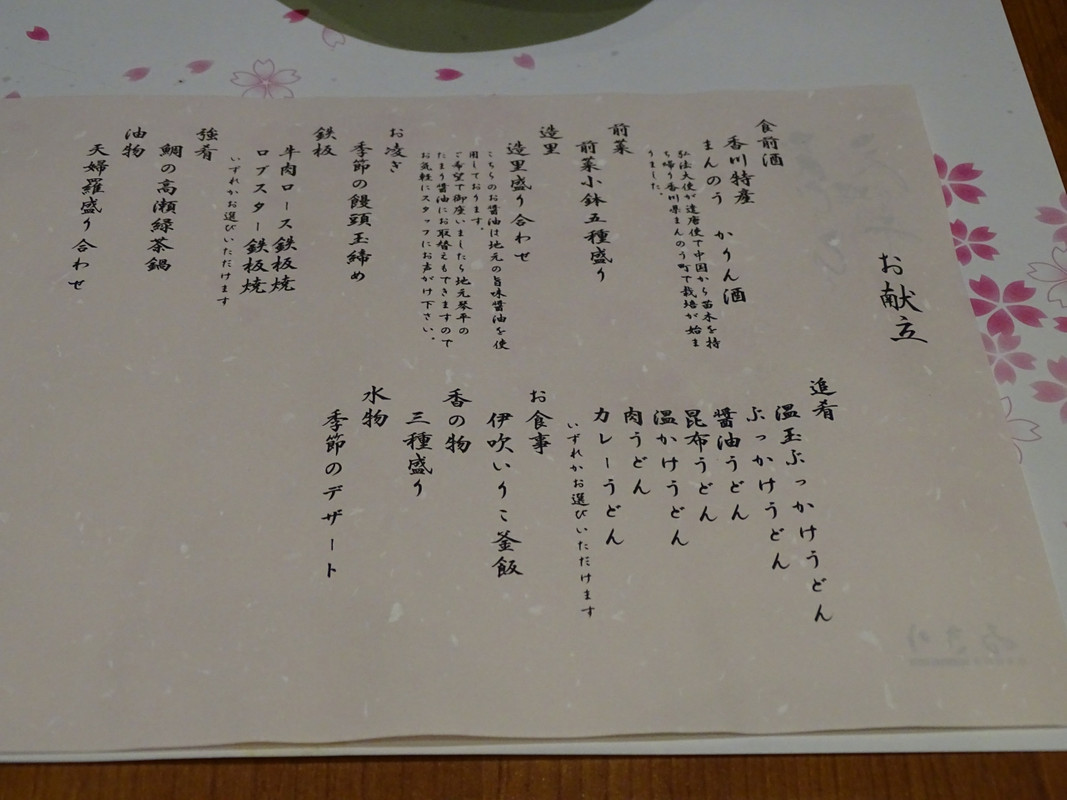 お献立
食前酒
香川特産
まんのう　かりん酒
弘法大使が遣唐使で中国から苗木を持
ち帰り香川県まんのう町で栽培が始ま
りました。
前菜
前菜小鉢五種盛り
造里
造里盛り合わせ
こちらのお醤油は地元の旨味醤油を使
用しております。
ご希望で御座いましたら地元琴平の
たまり醤油にお取替えもできますので
お気軽にスタッフにお声がけ下さい。
お凌ぎ
季節の饅頭玉締め
鉄板
牛肉ロース鉄板焼
ロブスター鉄板焼
いずれかお選びいただけます
強肴
鯛の高瀬緑茶鍋
油物
天婦羅盛り合わせ
追肴
温玉ぶっかけうどん
ぶっかけうどん
醤油うどん
昆布うどん
温かけうどん
肉うどん
カレーうどん
いずれかお選びいただけます
お食事
伊吹いりこ釜飯
香の物
三種盛り
水物
季節のデザート